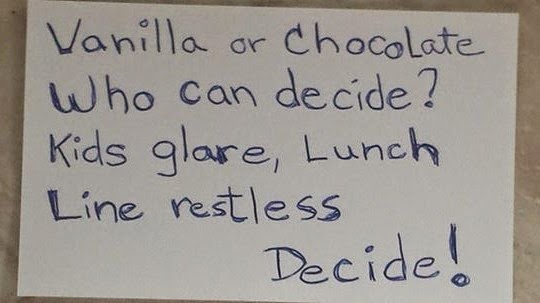 Vanilla or Chocolate
Who can decide?
Kids glare, Lunch
Line restless
Decide!